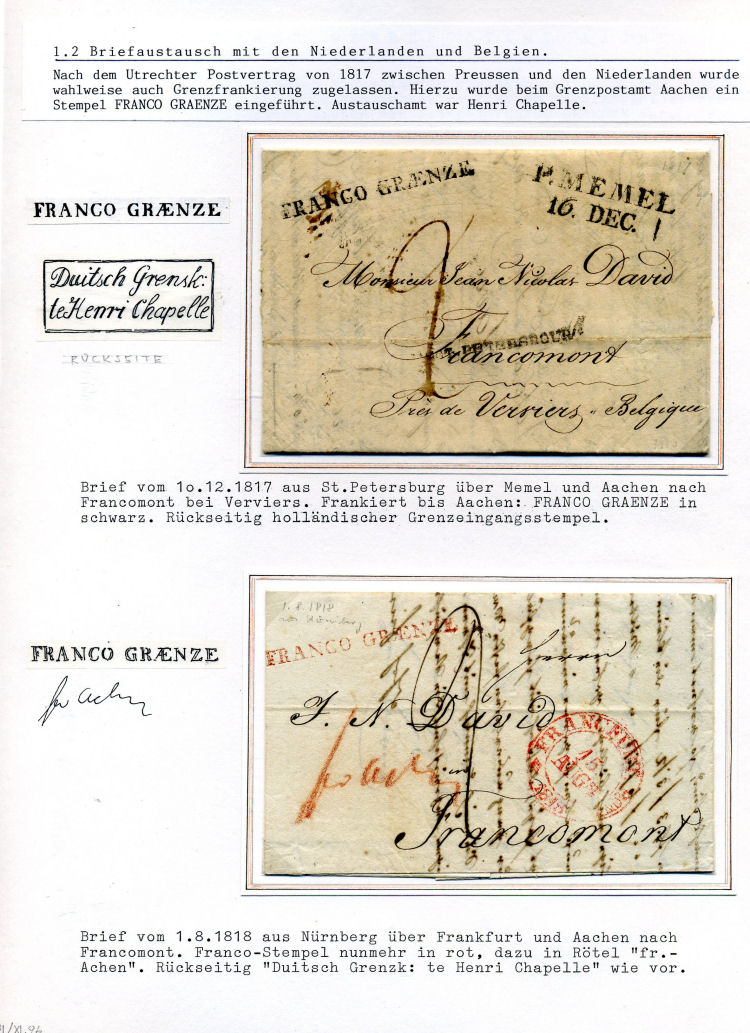 1.2 Briefaustausch mit den Niederlanden und Belgien.
Nach dem Utrechter Postvertrag von 1817 zwischen Preussen und den Niederlanden wurde
wahlweise auch Grenzfrankierung zugelassen. Hierzu wurde beim Grenzpostamt Aachen ein
Stempel FRANCO GRAENZE eingeführt. Austauschamt war Henri Chapelle.
FRANCO GRÆNZE
Duitsch Grensk:
te Henri Chapelle
RÜCKSEITE
FRANCO GRÆNZE
P. MEMEL
16. DEC.
Monsieur Jean Nicolas David
ST. PETERSBOURG
Francomont
Près de Verviers Belgique
Brief vom 1o.12.1817 aus St.Petersburg über Memel und Aachen nach
Francomont bei Verviers. Frankiert bis Aachen: FRANCO GRAENZE in
schwarz. Rückseitig holländischer Grenzeingangsstempel.
FRANCO GRÆNZE
fr Achen
1.8.1818
aus Nürnberg
FRANCO GRÆNZE
Herrn
J. N. David
in
fr Achen
FRANCFURT
15
AUG
1818
Francomont
Brief vom 1.8.1818 aus Nürnberg über Frankfurt und Aachen nach
Francomont. Franco-Stempel nunmehr in rot, dazu in Rötel "fr.-
Achen". Rückseitig "Duitsch Grenzk: te Henri Chapelle" wie vor.